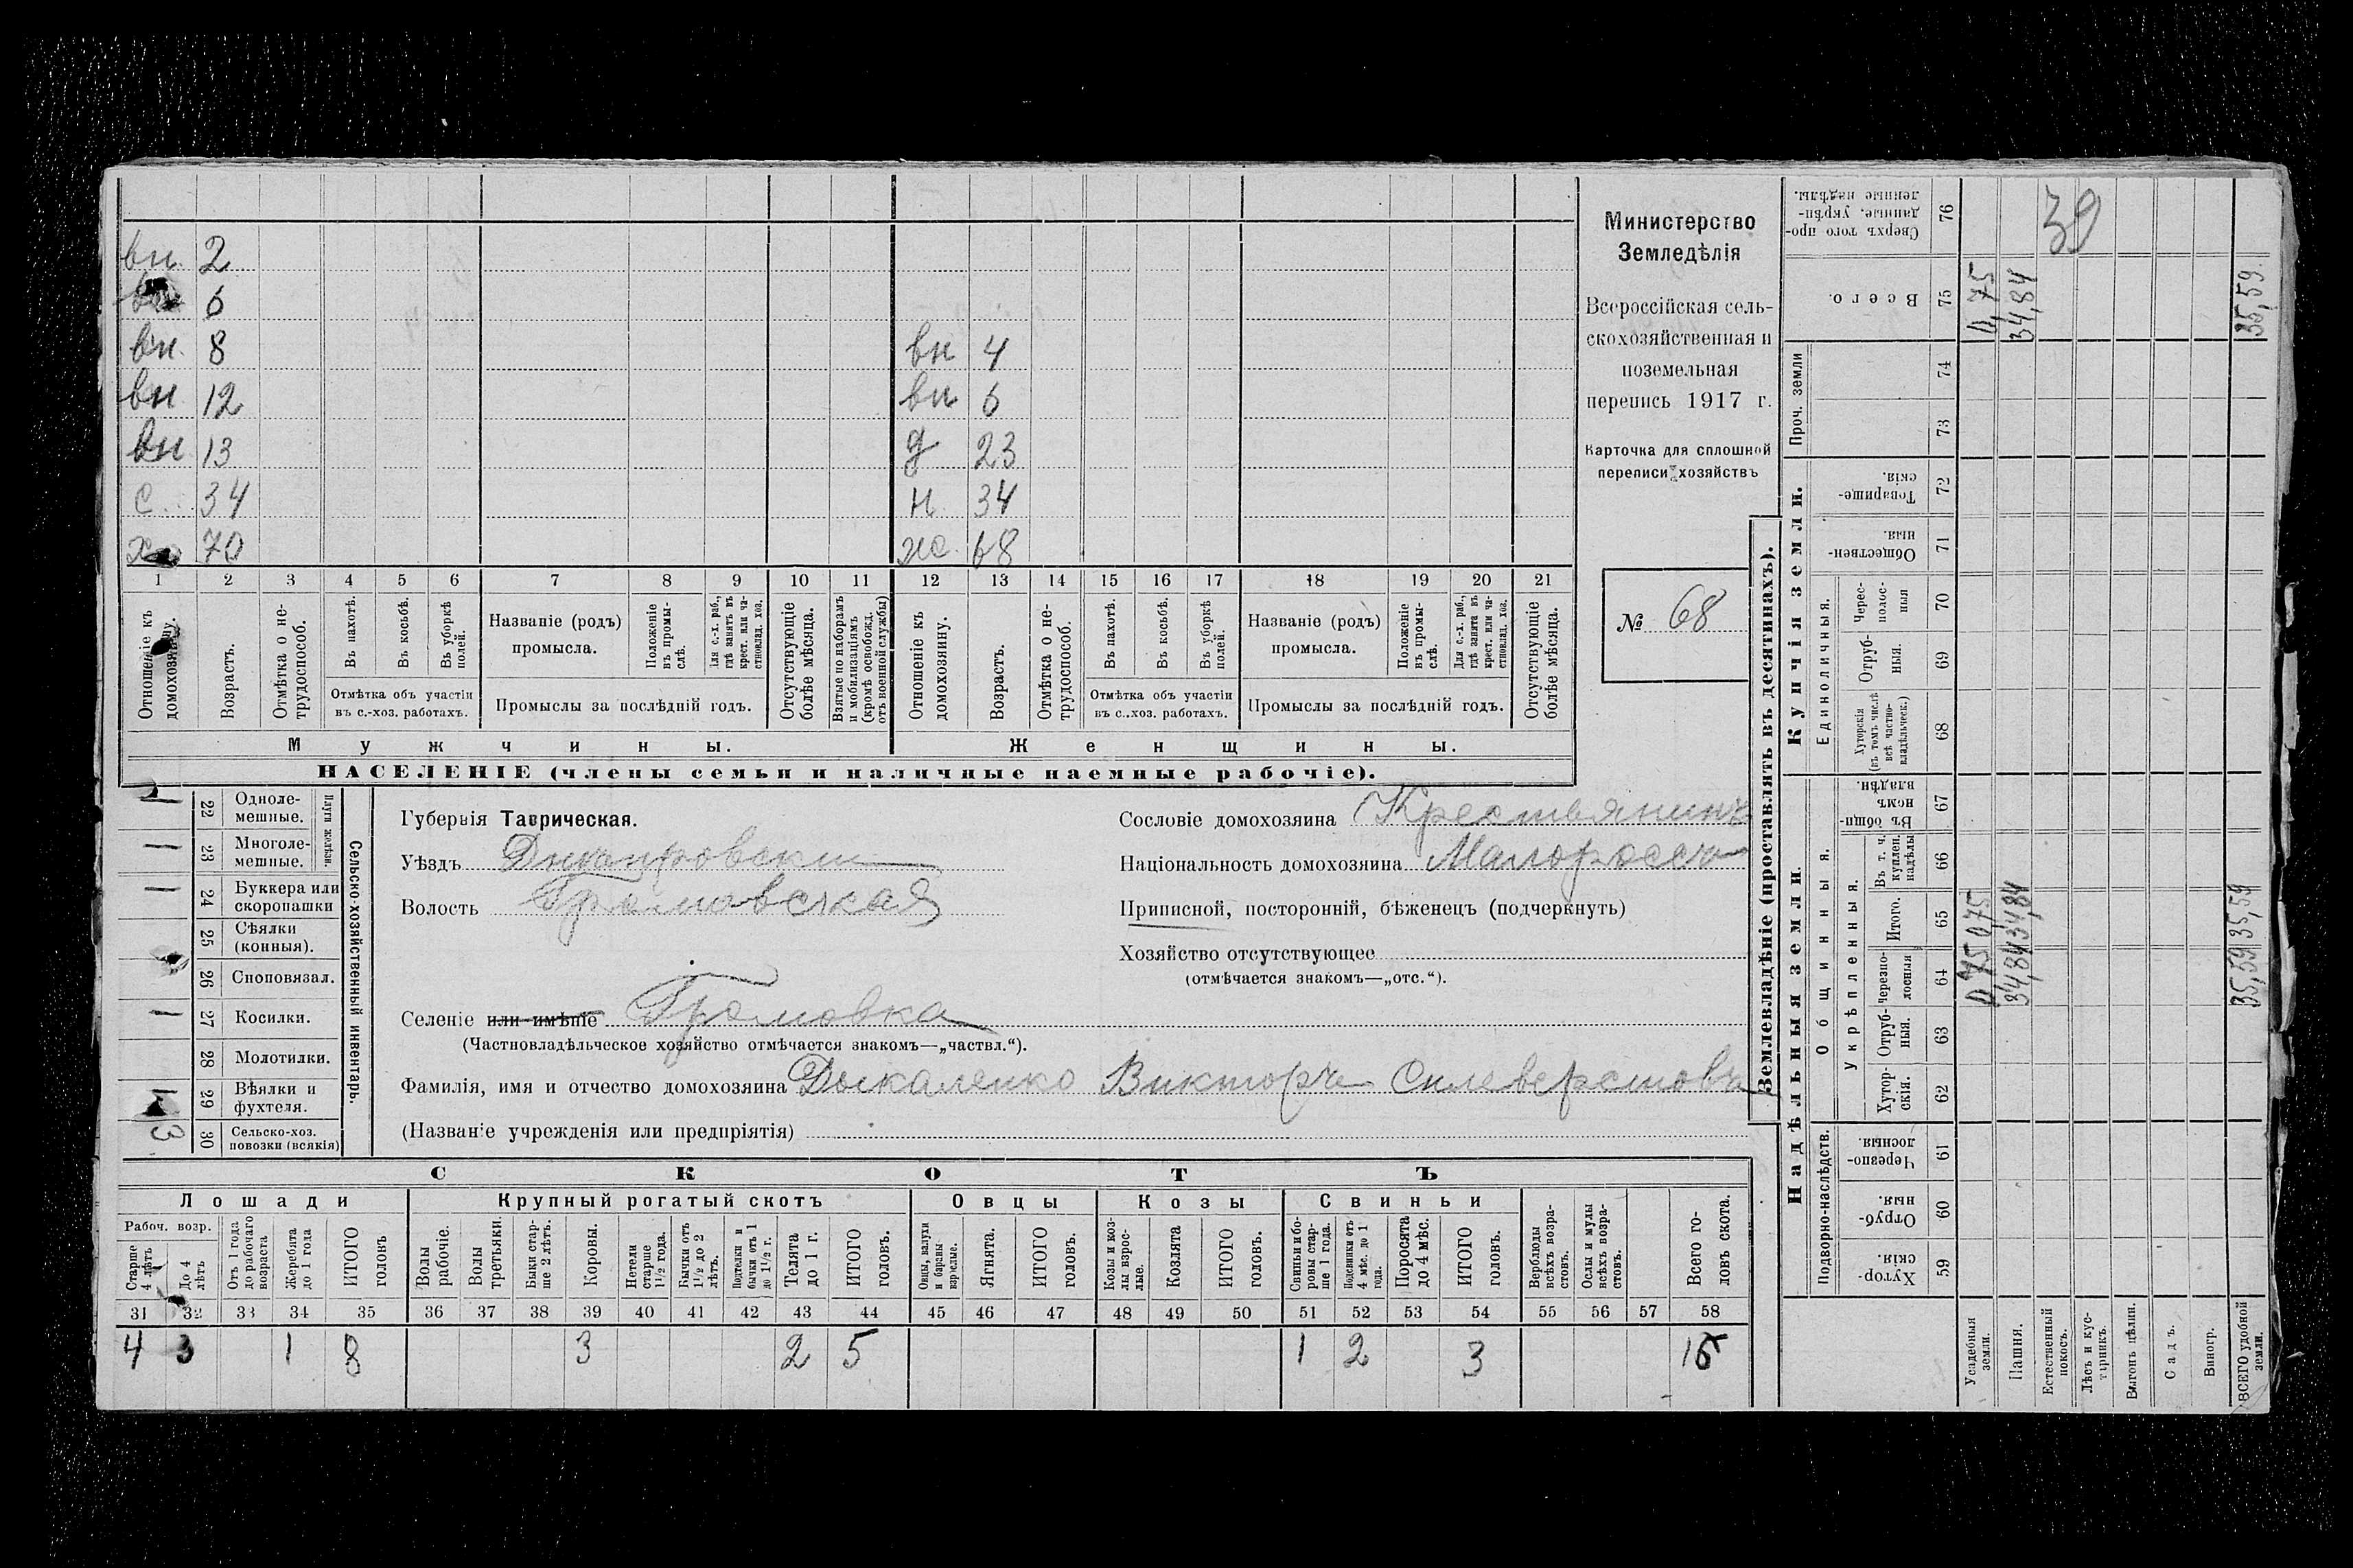 вн. 2
6
вн. 8 вн 4
вн 12 вн 6
вн 13 д 23
с 34 н 34
х 70 ж. 68
1 2 3 4 5 6 7 8 9 10 11 12 13 14 15 16 17 18 19 20 21
Отношеніе къ домохозяину.
Возрастъ.
Отмѣтка о нетрудоспособ.
Въ пахотѣ.
Въ косьбѣ.
Въ уборкѣ полей.
Отмѣтка объ участіи въ с.-хоз. работахъ.
Названіе (родъ) промысла.
Положеніе въ промыслѣ.
Для с.-х. раб., гдѣ занятъ въ крест. или частновлад. хоз.
Промыслы за послѣдній годъ.
Отсутствующіе болѣе мѣсяца.
Взятые по наборамъ и мобилизаціямъ (кромѣ освобожд. отъ военной службы)
Отношеніе къ домохозяину.
Возрастъ.
Отмѣтка о нетрудоспособ.
Въ пахотѣ.
Въ косьбѣ.
Въ уборкѣ полей.
Отмѣтка объ участіи въ с..хоз. работахъ.
Названіе (родъ) промысла.
Положеніе въ промыслѣ.
Для с.-х. раб., гдѣ занята въ крест. или частновлад. хоз.
Промыслы за послѣдній годъ.
Отсутствующіе болѣе мѣсяца.
Мужчины. Женщины.
НАСЕЛЕНІЕ (члены семьи и наличные наемные рабочіе).
Министерство
Земледѣлія
Всероссійская сель-
скохозяйственная и
поземельная
перепись 1917 г.
Карточка для сплошной
переписи хозяйствъ
№ 68
1 22 Одноле-
мешные.
1 23 Многоле-
мешные.
Плуги желѣзн.
1 24 Буккера или
скоропашки
25 Сѣялки
(конныя).
26 Сноповязал.
1 27 Косилки.
28 Молотилки.
29 Вѣялки и
фухтеля.
3 30 Сельско-хоз.
повозки (всякія)
Сельско-хозяйственный инвентарь.
Губернія Таврическая.
Уѣздъ Днепровскій
Волость Громовская
Селеніе или имѣніе Громовка
(Частновладѣльческое хозяйство отмѣчается знакомъ—„частвл.“).
Фамилія, имя и отчество домохозяина Дыкаленко Викторъ Силеверстовъ
(Названіе учрежденія или предпріятія)
Сословіе домохозяина Крестьянинъ
Національность домохозяина Малороссъ
Приписной, посторонній, бѣженецъ (подчеркнуть)
Хозяйство отсутствующее
(отмѣчается знакомъ—„отс.“).
СКОТЪ
Лошади Крупный рогатый скотъ Овцы Козы Свиньи
Рабоч. возр.
Старше 4 лѣтъ
До 4 лѣтъ
Отъ 1 года до рабочаго возраста
Жеребята до 1 года
ИТОГО головъ
Волы рабочіе.
Волы третьяки.
Быки старше 2 лѣтъ.
Коровы.
Нетели старше 1½ года.
Бычки отъ 1½ до 2 лѣтъ.
Подтелки и бычки отъ 1 до 1½ г.
Телята до 1 г.
ИТОГО головъ.
Овцы, валухи и бараны взрослые.
Ягнята.
ИТОГО головъ.
Козы и козлы взрослые.
Козлята
ИТОГО головъ.
Свиньи и боровы старше 1 года.
Подсвинки отъ 4 мѣс. до 1 года.
Поросята до 4 мѣс.
ИТОГО головъ.
Верблюды всѣхъ возрастовъ.
Ослы и мулы всѣхъ возрастовъ.
Всего головъ скота.
31 32 33 34 35 36 37 38 39 40 41 42 43 44 45 46 47 48 49 50 51 52 53 54 55 56 57 58
4 3 1 8 3 2 5 1 2 3
Землевладѣніе (проставлять въ десятинахъ).
Надѣльныя земли.
Купчія земли.
Проч. земли
Подворно-наслѣдств.
Общинныя.
Укрѣпленныя.
Единоличныя.
Хуторскія. 59
Отрубныя. 60
Черезполосныя 61
Хуторскія. 62
Отрубныя. 63
Черезполосныя 64
Итого. 65
Въ т. ч. куплен. надѣлы 66
Въ общинномъ владѣн. 67
Хуторскія (въ томъ числѣ всѣ частновладѣльческ.) 68
Отрубныя. 69
Чересполосныя 70
Общественныя. 71
Товарищескія. 72
73
74
Всего. 75
Сверхъ того проданные, укрѣпленные надѣлы. 76
Усадебныя земли. 0,75 0,75 0,75
Пашня. 34,84 34,84 34,84
Естественный покосъ.
Лѣсъ и кустарникъ.
Выгонъ цѣлин.
Садъ.
Виногр.
ВСЕГО удобной земли. 35,59 35,59 35,59
39